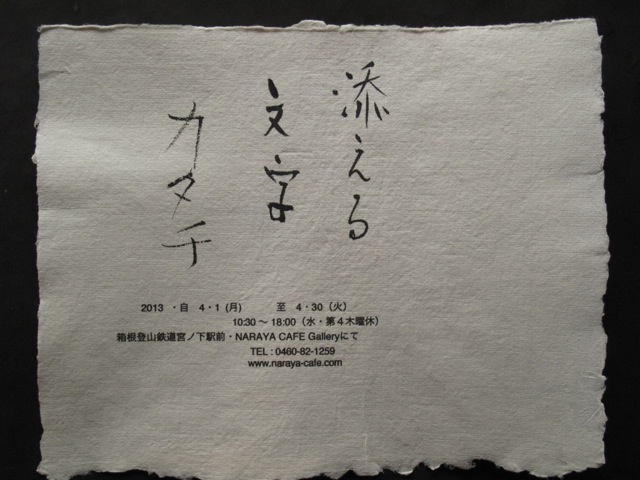 添える
文字
カタチ
2013 ・自 4・1 (月) 至 4・30（火）
10:30 〜 18:00（水・第４木曜休）
箱根登山鉄道宮ノ下駅前・NARAYA CAFE Galleryにて
TEL : 0460-82-1259
www.naraya-cafe.com